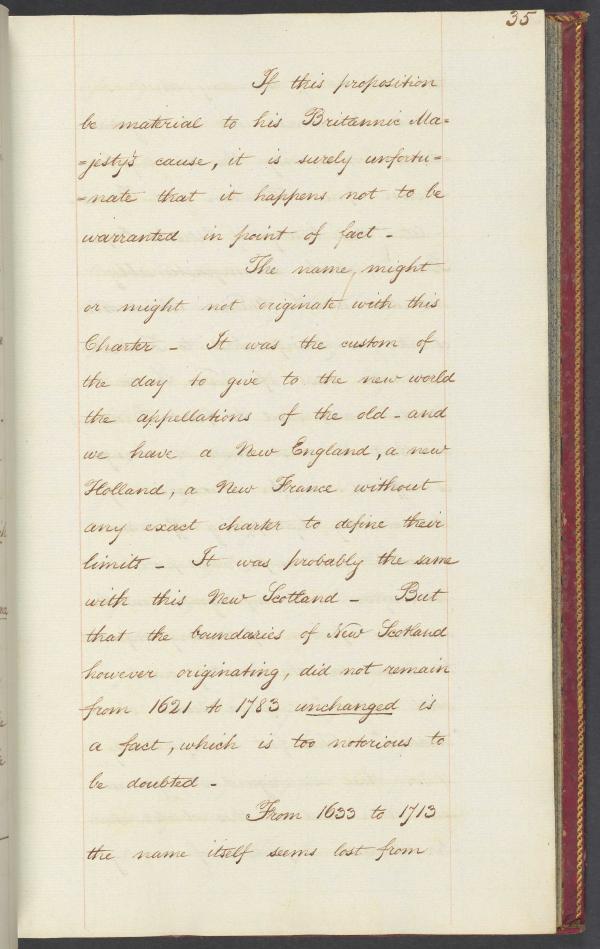 35
If this proposition
be material to his Britannic Ma=
=jesty's cause, it is surely unfortu=
=nate that it happens not to be
warranted in point of fact -
The name, might
or might not originate with this
Charter - It was the custom of
the day to give to the new world
the appellations of the old - and
we have a New England, a new
Holland, a New France without
any exact charter to define their
limits - It was probably the same
with this New Scotland - But
that the boundaries of New Scotland
however originating, did not remain
from 1621 to 1783 unchanged is
a fact, which is too notorious to
be doubted -
From 1633 to 1713
the name itself seems lost from